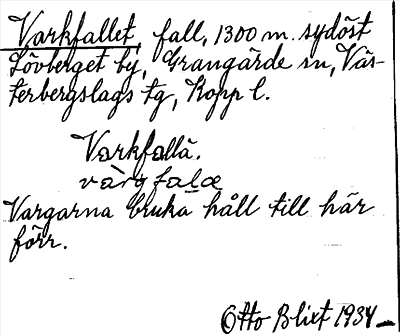 Varkfallet, fall, 1300 m. sydöst
Lövberget by, Grangärde sn, Väs-
terbergslags tg, Kopp l.
Varkfallä.
vàrgfalæ
Vargarna bruka håll till här
förr.
Otto Blixt 1934